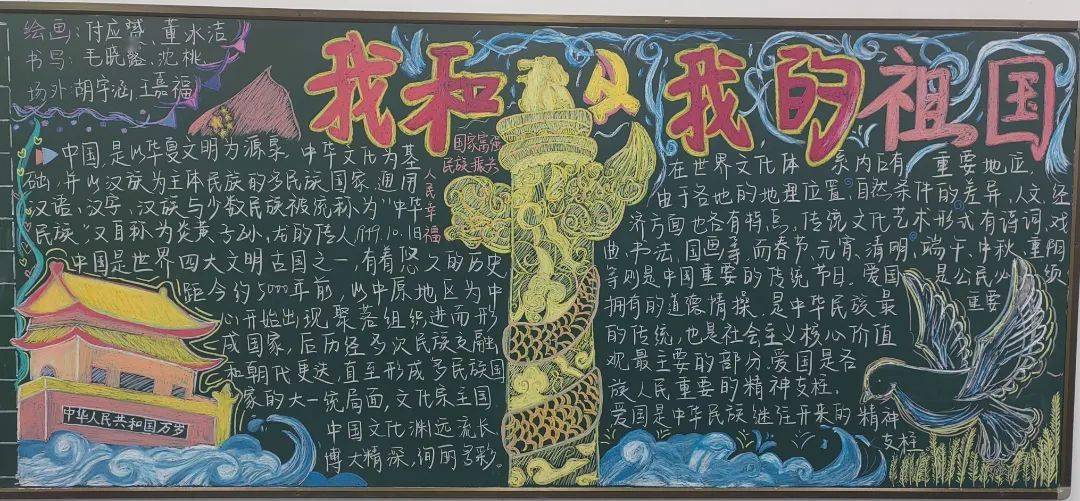 绘画：付应赟、董冰洁
书写：毛晓鑫、沈桃、
场外：胡宇涵、王嘉福
我和我的祖国
国家富强
民族振兴
人民幸福
中国，是以华夏文明为源泉、中华文化为基
础，并以汉族为主体民族的多民族国家，通用
汉语、汉字，汉族与少数民族被统称为“中华
民族”，又自称为炎黄子孙，龙的传人
中国是世界四大文明古国之一，有着悠久的历史
距今约5000年前，以中原地区为中
心开始出现聚落组织进而形
成国家，后历经多次民族交融
和朝代更迭，直至形成多民族国
家的大一统局面，文化宗主国
中国文化渊远流长
博大精深，绚丽多彩。
中华人民共和国万岁
在世界文化体系内占有重要地位，
由于各地的地理位置，自然条件的差异，人文，经
济方面也各有特点，传统文化艺术形式有诗词，戏
曲，书法，国画等，而春节，元宵，清明，端午，中秋，重阳
等则是中国重要的传统节日。爱国是公民必须
拥有的道德情操，是中华民族最重要
的传统，也是社会主义核心价值
观最主要的部分。爱国是各
族人民重要的精神支柱。
爱国是中华民族继往开来的精神
支柱